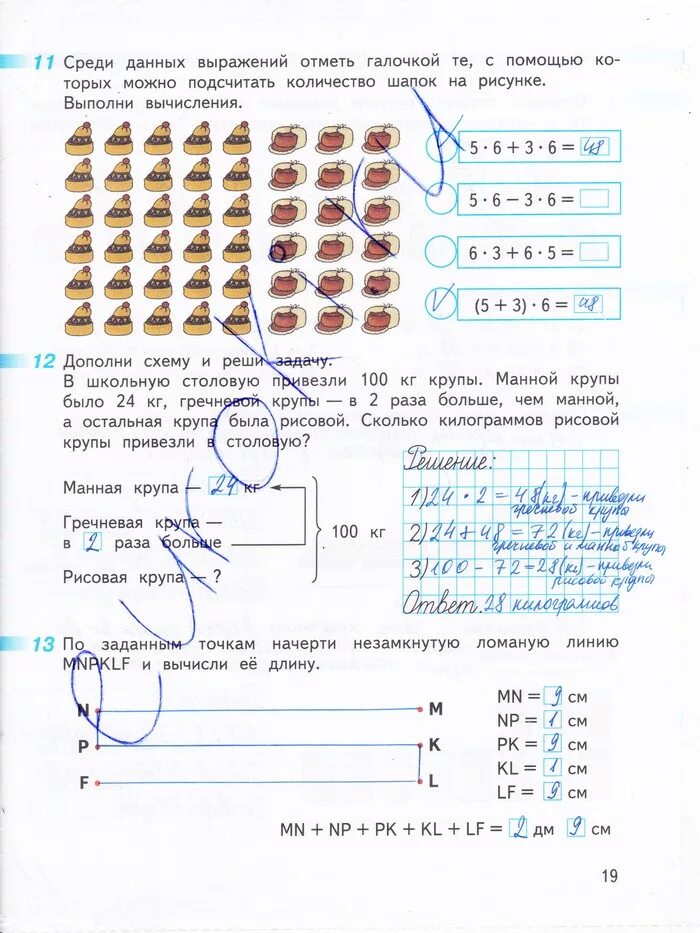 11 Среди данных выражений отметь галочкой те, с помощью ко-
торых можно подсчитать количество шапок на рисунке.
Выполни вычисления.
V 5 · 6 + 3 · 6 = 48
5 · 6 − 3 · 6 =
6 · 3 + 6 · 5 =
V (5 + 3) · 6 = 48
12 Дополни схему и реши задачу.
В школьную столовую привезли 100 кг крупы. Манной крупы
было 24 кг, гречневой крупы — в 2 раза больше, чем манной,
а остальная крупа была рисовой. Сколько килограммов рисовой
крупы привезли в столовую?
Манная крупа — 24 кг
Гречневая крупа —
в 2 раза больше
Рисовая крупа — ?
100 кг
Решение:
1) 24 · 2 = 48 (кг) - привезли
гречневой крупы
2) 24 + 48 = 72 (кг) - привезли
гречневой и манной крупы
3) 100 - 72 = 28 (кг) - привезли
рисовой крупы
Ответ. 28 килограммов
13 По заданным точкам начерти незамкнутую ломаную линию
MNPKLF и вычисли её длину.
N M
P K
F L
MN = 9 см
NP = 1 см
PK = 9 см
KL = 1 см
LF = 9 см
MN + NP + PK + KL + LF = 2 дм 9 см
19